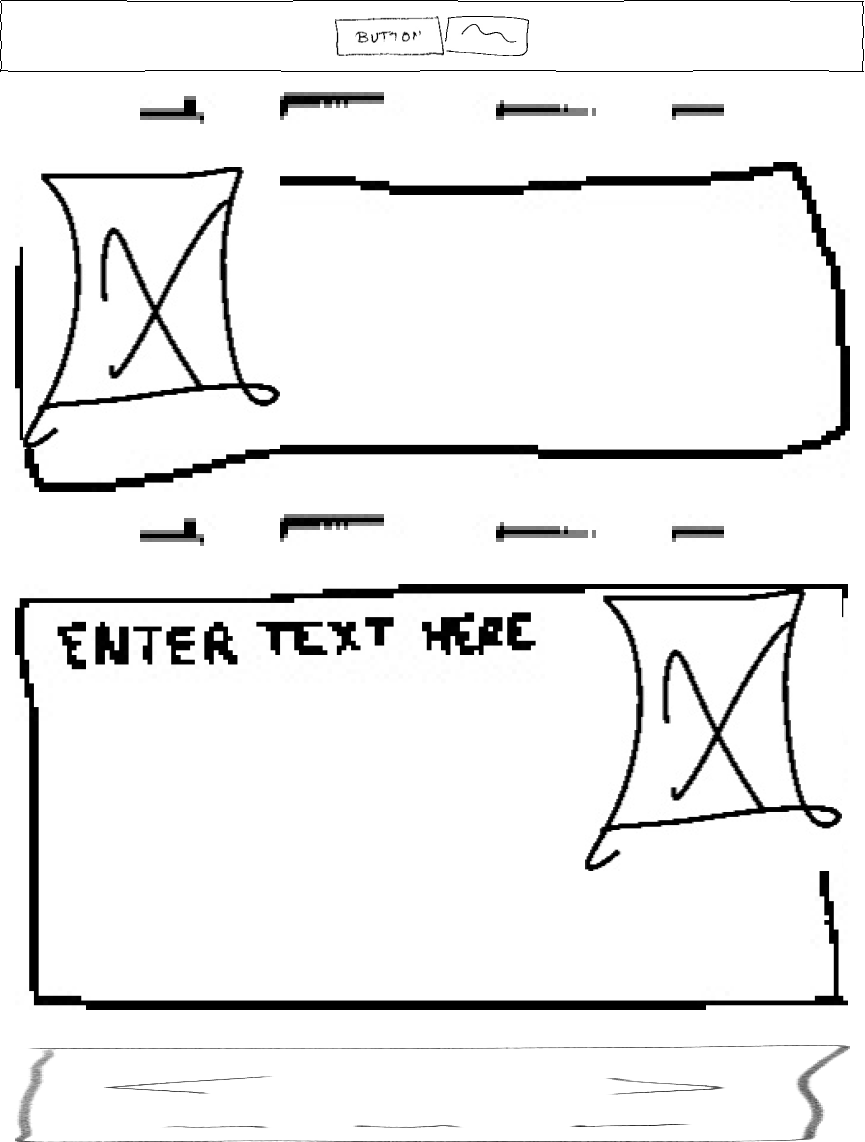 BUTTON
ENTER TEXT HERE